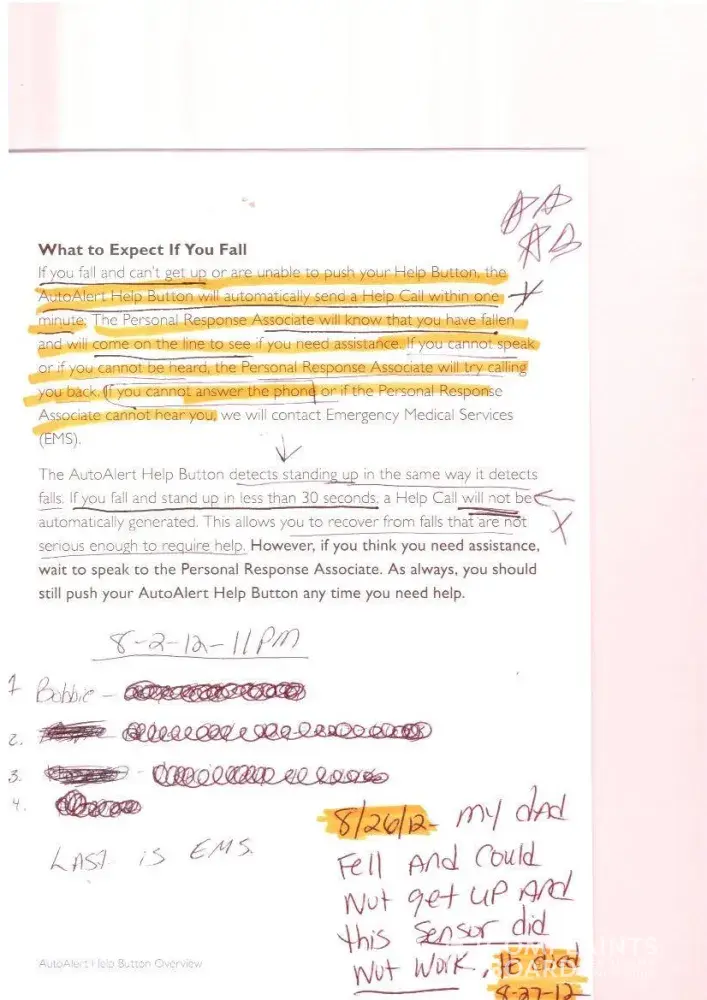 What to Expect If You Fall
If you fall and can't get up or are unable to push your Help Button, the
AutoAlert Help Button will automatically send a Help Call within one
minute. The Personal Response Associate will know that you have fallen
and will come on the line to see if you need assistance. If you cannot speak
or if you cannot be heard, the Personal Response Associate will try calling
you back. If you cannot answer the phone or if the Personal Response
Associate cannot hear you, we will contact Emergency Medical Services
(EMS).
The AutoAlert Help Button detects standing up in the same way it detects
falls. If you fall and stand up in less than 30 seconds, a Help Call will not be
automatically generated. This allows you to recover from falls that are not
serious enough to require help. However, if you think you need assistance,
wait to speak to the Personal Response Associate. As always, you should
still push your AutoAlert Help Button any time you need help.
8-2-12-11PM
1 Bobbie -
2.
3.
4.
LAST is EMS.
8/26/12- my dAD
Fell And Could
Not get up And
this Sensor did
Not Work, He died
8-27-12
AutoAlert Help Button Overview
COMPLAINTS
BOARD